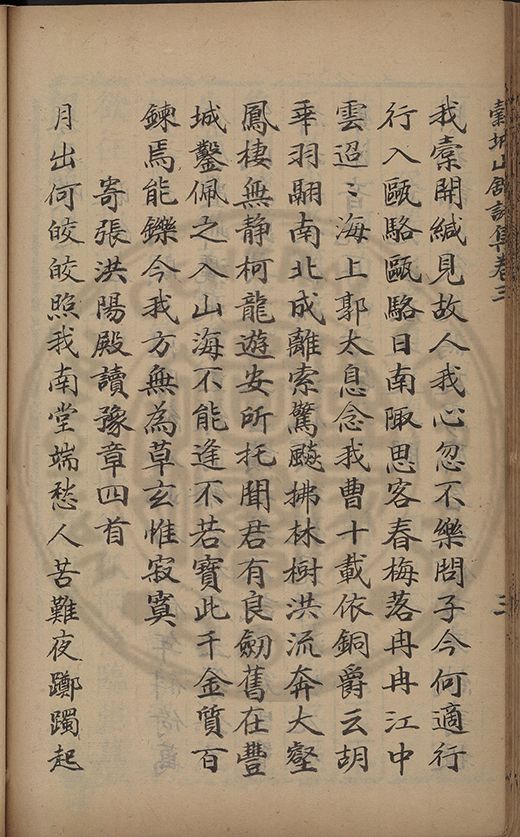 穀城山館詩集卷三
三
我橐開緘見故人我心忽不樂問子今何適行
行入甌駱甌駱日南陬思客春梅落冉冉江中
雲迢〻海上郭太息念我曹十載依銅爵云胡
乖羽翮南北成離索驚飈拂林樹洪流奔大壑
鳳棲無静柯龍遊安所托聞君有良劒舊在豐
城鑿佩之入山海不能逢不若寶此千金質百
鍊焉能鑠今我方無為草玄惟寂寞
寄張洪陽殿讀豫章四首
月出何皎皎照我南堂端愁人苦難夜躑躅起